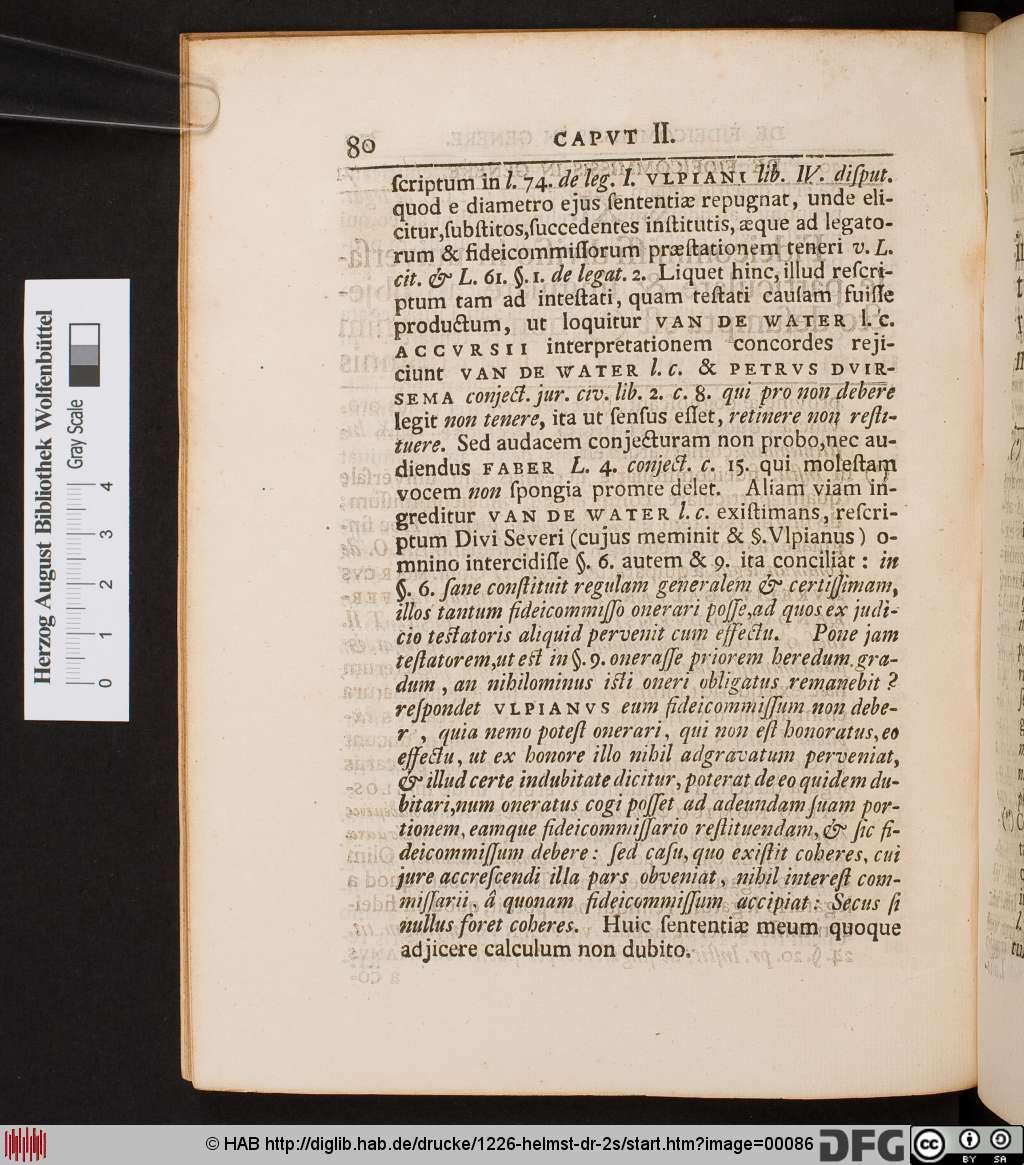 80 CAPVT II.
ſcriptum in l. 74. de leg. I. VLPIANI lib. IV. diſput.
quod e diametro ejus ſententiæ repugnat, unde eli-
citur,ſubſtitos,ſuccedentes inſtitutis, æque ad legato-
rum & fideicommiſſorum præſtationem teneri v. L.
cit. & L. 61. §. 1. de legat. 2. Liquet hinc, illud reſcri-
ptum tam ad inteſtati, quam teſtati cauſam fuiſſe
productum, ut loquitur VAN DE WATER l. c.
ACCVRSII interpretationem concordes reji-
ciunt VAN DE WATER l. c. & PETRVS DVIR-
SEMA conject. jur. civ. lib. 2. c. 8. qui pro non debere
legit non tenere, ita ut ſenſus eſſet, retinere non reſti-
tuere. Sed audacem conjecturam non probo,nec au-
diendus FABER L. 4. conject. c. 15. qui moleſtam
vocem non ſpongia promte delet. Aliam viam in-
greditur VAN DE WATER l. c. exiſtimans, reſcri-
ptum Divi Severi (cujus meminit & §.Vlpianus) o-
mnino intercidiſſe §. 6. autem & 9. ita conciliat : in
§. 6. ſane conſtituit regulam generalem & certiſſimam,
illos tantum fideicommiſſo onerari poſſe,ad quos ex judi-
cio teſtatoris aliquid pervenit cum effectu. Pone jam
teſtatorem,ut eſt in §. 9. oneraſſe priorem heredum gra-
dum, an nihilominus iſti oneri obligatus remanebit ?
reſpondet VLPIANVS eum fideicommiſſum non debe-
r , quia nemo poteſt onerari, qui non eſt honoratus, eo
effectu, ut ex honore illo nihil adgravatum perveniat,
& illud certe indubitate dicitur, poterat de eo quidem du-
bitari,num oneratus cogi poſſet ad adeundam ſuam por-
tionem, eamque fideicommiſſario reſtituendam, & ſic fi-
deicommiſſum debere: ſed caſu, quo exiſtit coheres, cui
jure accreſcendi illa pars obveniat, nihil intereſt com-
miſſarii, â quonam fideicommiſſum accipiat: Secus ſi
nullus foret coheres. Huic ſententiæ meum quoque
adjicere calculum non dubito.
Herzog August Bibliothek Wolfenbüttel
Gray Scale
0 1 2 3 4
© HAB http://diglib.hab.de/drucke/1226-helmst-dr-2s/start.htm?image=00086 DFG cc BY SA